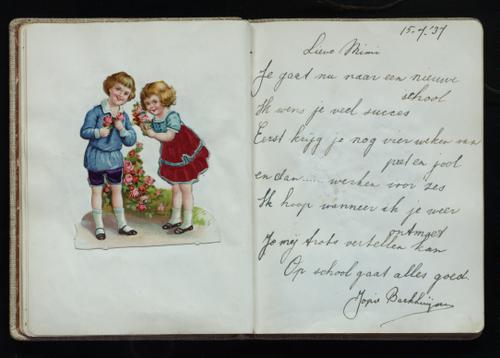 15.7.'37
Lieve Mimi
Je gaat nu naar een nieuwe
school
Ik wens je veel succes
Eerst krijg je nog vier weken van
pret en jool
en dan .... werken voor zes
Ik hoop wanneer ik je weer
ontmoet
Je mij trots vertellen kan
Op school gaat alles goed.